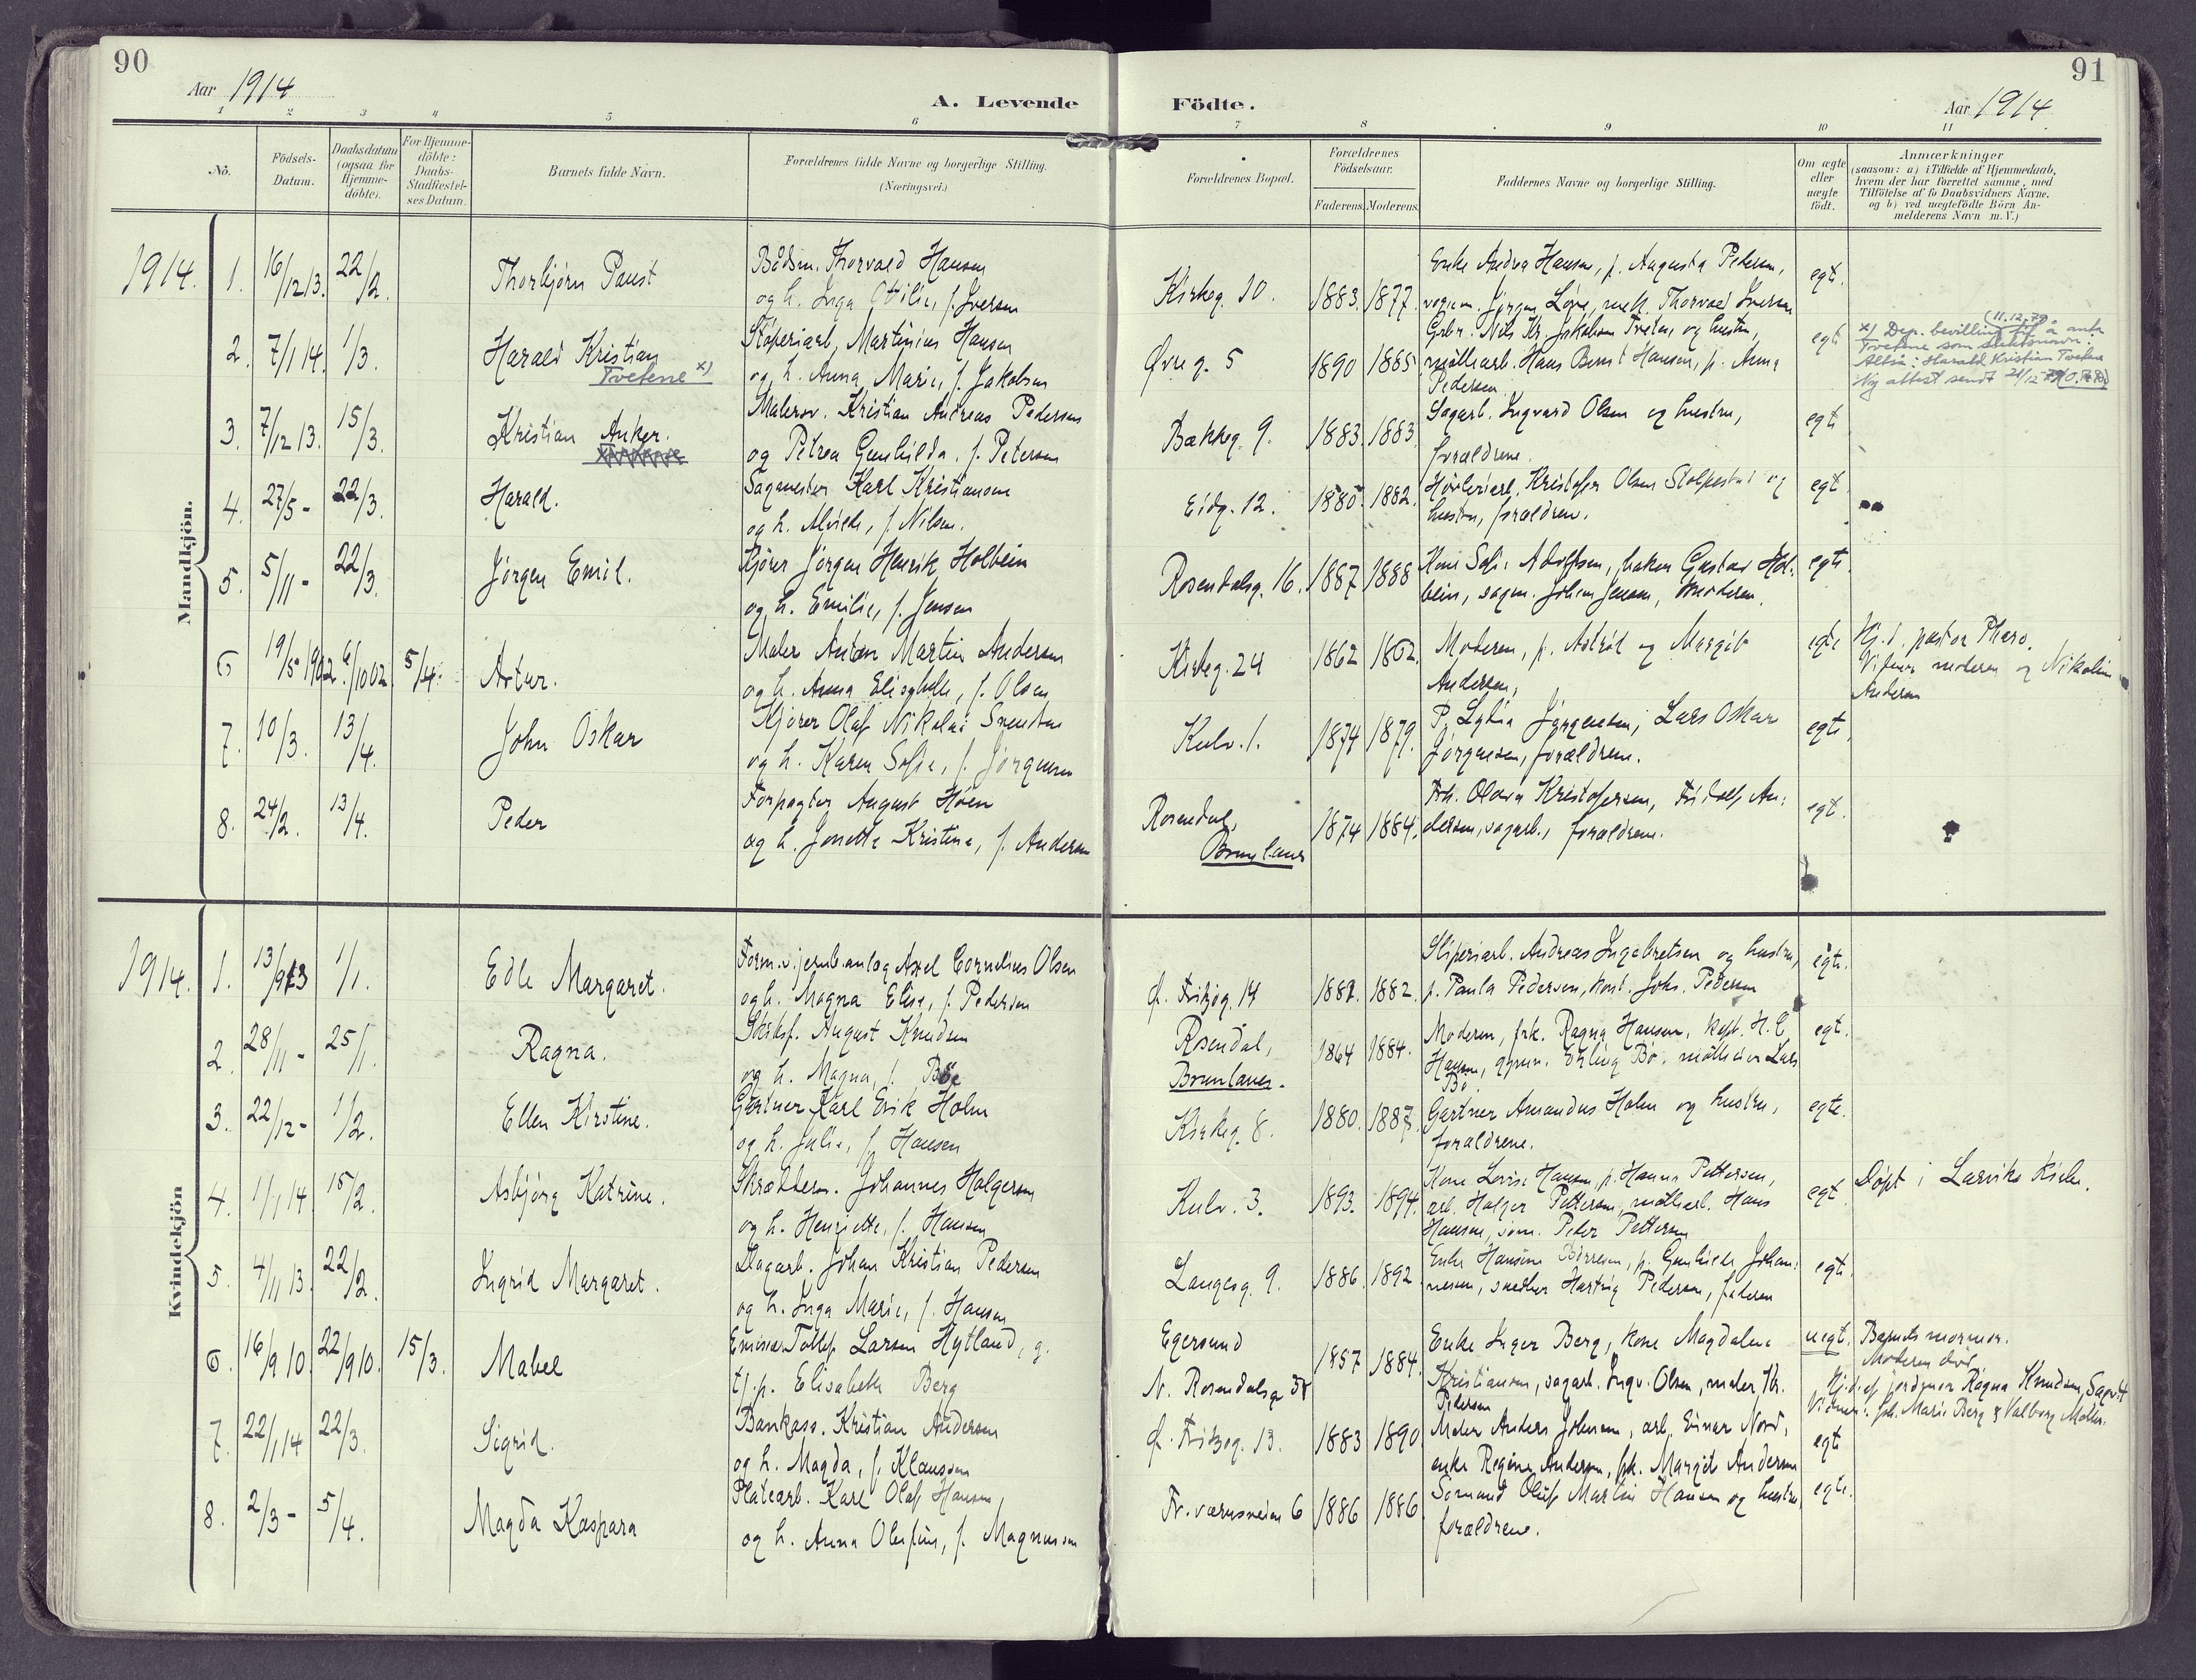 90
Aar 1914
A. Levende
Födte.
Aar 1914.
91
1 2 3 4 5 6 7 8 9 10 11
No.
Födsels-
Datum.
Daabsdatum
(ogsaa for
Hjemme-
döbte).
For Hjemme-
döbte:
Daabs-
Stadfæstel-
ses Datum.
Barnets fulde Navn.
Forældrenes fulde Navne og borgerlige Stilling.
(Næringsvei.)
Forældrenes Bopæl.
Forældrenes
Födselsaar.
Faderens.
Moderens.
Faddernes Navne og borgerlige Stilling.
Om ægte
eller
uægte
födt.
Anmærkninger
(saasom: a) i Tilfælde af Hjemmedaab,
hvem der har forrettet samme, med
Tilföielse af to Daabsvidners Navne,
og b) ved uægtefödte Börn An-
melderens Navn m. V.)
Mandkjön.
1914. 1. 16/12 13. 22/2. Thorbjørn Paust
Bådsm. Thorvald Hansen
og h. Inga Otilie, f. Iversen
Kirkeg. 10. 1883. 1877.
Enke Andrea Hansen, p. Augusta Pedersen,
Jørgen Løve, Thorvald Iversen
egt.
2. 7/1 14. 1/3. Harald Kristian
Tvetene x)
Støperiarb. Martinius Hansen
og h. Anna Marie, f. Jakobsen
Øvre g. 5 1890 1885.
Grbr. Nils Kr. Jakobsen Tveten og hustru,
møllearb. Hans Bernt Hansen, p. Anna
Pedersen
egt.
(11.12.79)
x) Dep. bevilling til å anta
Tvetene som slektsnavn.
Altså: Harald Kristian Tvetene
Ny attest sendt 21/12-79
3. 7/12 13. 15/3. Kristian Anker.
Malersv. Kristian Andreas Pedersen
og Petrea Gunhilda, f. Petersen
Bækkeg. 9. 1883. 1883.
Sagarb. Ingvard Olsen og hustru,
forældrene.
egt.
4. 27/5 - 22/3. Harald.
Sagmester Karl Kristiansen
og h. Alvilde, f. Nilsen.
Eidg. 12. 1880. 1882.
Høvleriarb. Kristoffer Olsen Stolpestad og
hustru, forældrene.
egt.
5. 5/11 - 22/3. Jørgen Emil.
Kjører Jørgen Henrik Holbein
og h. Emilie, f. Jensen
Rosendalsg. 16. 1887 1888
Kone Sofie Adolfsen, Gustav Hol-
bein, sagm. Johan Jensen, moderen.
egt.
6 19/5 1902. 6/10 02. 5/4. Artur.
Maler Anton Martin Andersen
og h. Anna Elisabeth, f. Olsen
Kirkeg. 24 1862 1862.
Moderen, p. Astrid og Margit
Andersen,
egt.
Hj.d. pastor Pharo.
Vidner moderen og Nikoline
Andersen
7. 10/3. 13/4. John Oskar
Kjører Olaf Nikolai Svendsen
og h. Karen Sofie, f. Jørgensen
Kulv. 1. 1874 1879.
P. Lydia Jørgensen, Lars Oskar
Jørgensen, forældrene.
egt.
8. 24/2. 13/4. Peder
Forpagter August Høen
og h. Jonette Kristine, f. Andersen
Rosendal,
Brunlanes
1874 1884.
Frk. Olava Kristoffersen, Fridolf An-
dersen, sagarb., forældrene.
egt.
Kvindekjön
1914. 1. 13/9 13 1/1. Edle Margaret.
Form. v. jernb.anlæg Axel Cornelius Olsen
og h. Magna Elise, f. Pedersen
Ø. Fritzøg. 14 1882. 1882.
Sliperiarb. Andreas Ingebretsen og hustru,
p. Paula Pedersen, kont. Johs. Pedersen
egt.
2. 28/11 - 25/1. Ragna.
August Knudsen
og h. Magna, f. Bøe
Rosendal,
Brunlanes.
1864 1884.
Moderen, frk. Ragna Hansen, H. C.
Hansen, gymn. Erling Bø, Lars
Bø.
egt.
3. 22/12 - 1/2. Ellen Kirstine.
Gartner Karl Erik Holm
og h. Julie, f. Hansen
Kirkeg. 8. 1880. 1887.
Gartner Amandus Holm og hustru,
forældrene.
egt.
4. 1/1 14 15/2. Asbjørg Katrine.
Skrædderm. Johannes Holgersen
og h. Henriette, f. Hansen
Kulv. 3. 1893. 1894.
Kone Lovise Hansen, p. Hanna Pettersen,
arb. Holger Pettersen, møllearb. Hans
Hansen, Peder Pettersen
egt.
Døpt i Larviks Kirke.
5. 4/11 13. 22/2. Ingrid Margaret.
Sagarb. Johan Kristian Pedersen
og h. Inga Marie, f. Hansen
Langesg. 9. 1886. 1892
Enke Hansine Børresen, p. Gunhilde Johan-
nesen, snedker Hartvig Pedersen, faderen
egt.
6. 16/9 10. 22/9 10. 15/3. Mabel
Tollef Larsen Hytland, g.
tj.p. Elisabeth Berg
Egersund
N. Rosendalsg. 38
1857 1884.
Enke Inger Berg, kone Magdalene
Kristiansen, sagarb. Ingv. Olsen, maler Kr.
Pedersen
uegt.
Barnets mormor.
Moderen død.
Hj.d. af jordmor Ragna Knudsen,
Vidner: Marie Berg & Valborg Møller.
7. 22/1 14 22/3. Sigrid.
Bankass. Kristian Andersen
og h. Magda, f. Klausen
Ø. Fritzøg. 13. 1883 1890
Maler Anders Johnsen, arb. Einar Nord,
enke Regine Andersen, frk. Margit Andersen
egt.
8. 2/3 - 5/4. Magda Kaspara
Platearb. Karl Olaf Hansen
og h. Anna Olufine, f. Magnussen
Fr. værnsveien 6 1886 1886
Sømand Oluf Martin Hansen og hustru
forældrene.
egt.